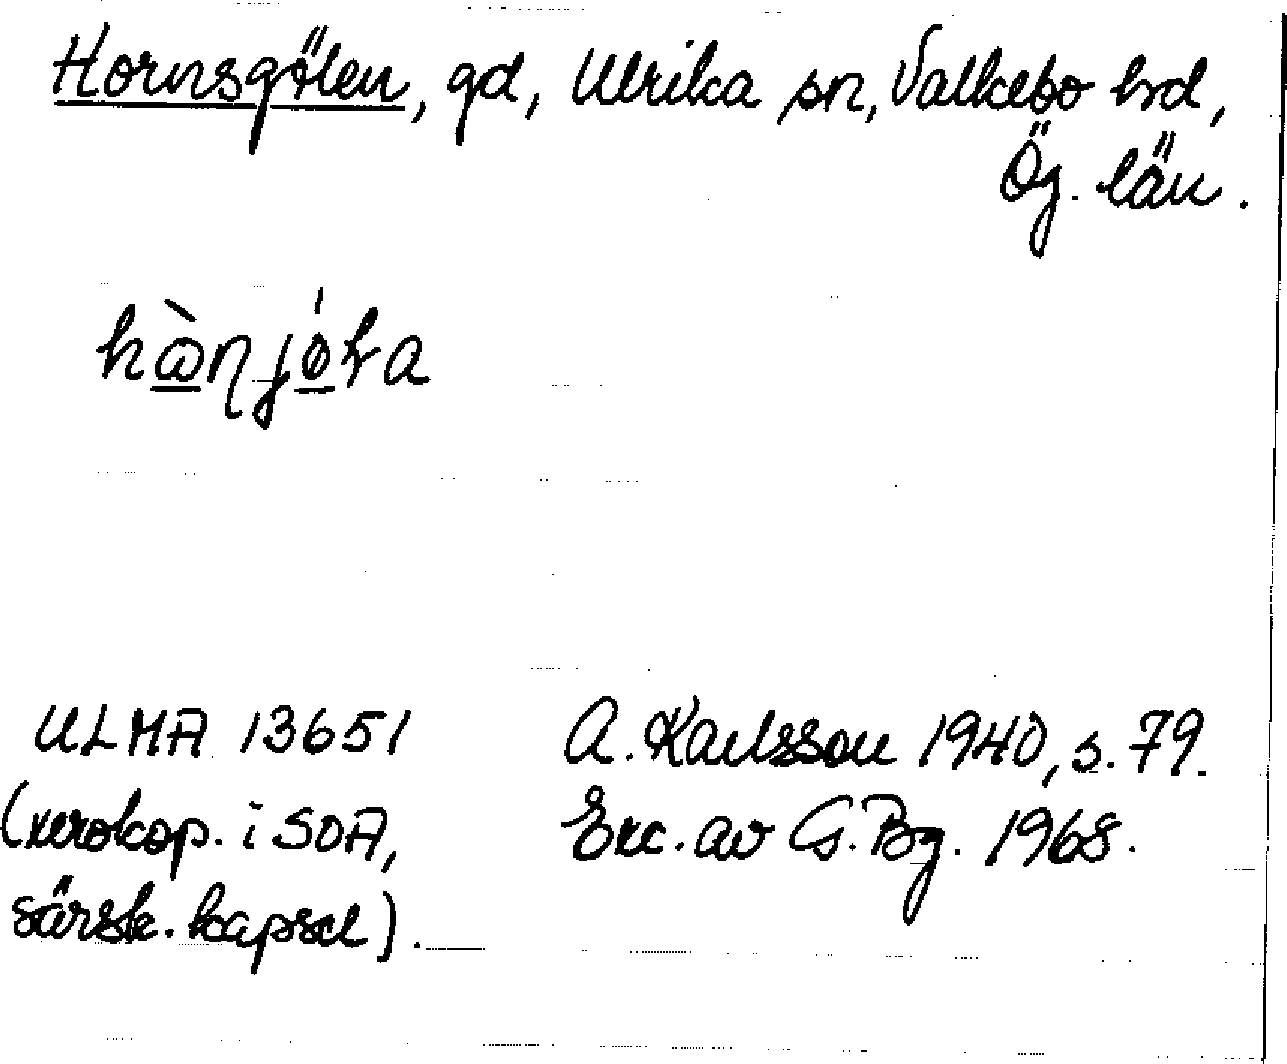 Hornsgölen, gd, Ulrika sn, Valkebo hd,
Ög. län.
ULMA 13651 A. Karlsson 1940, s. 79.
(xerokop. i SOA, Exc. av G. Bg. 1968.
särsk. kapsel).